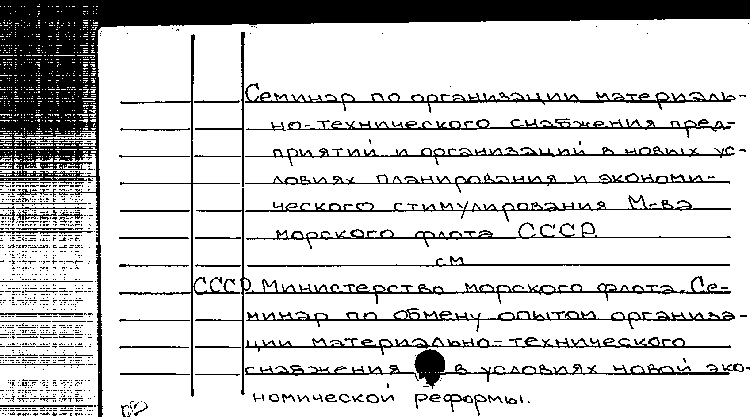 Семинар по организации материаль-
но-технического снабжения пред-
приятий и организаций в новых ус-
ловиях планирования и экономи-
ческого стимулирования М-ва
морского флота СССР
см
СССР. Министерство морского флота. Се-
минар по обмену опытом организа-
ции материально-технического
снабжения в условиях новой эко-
номической реформы.